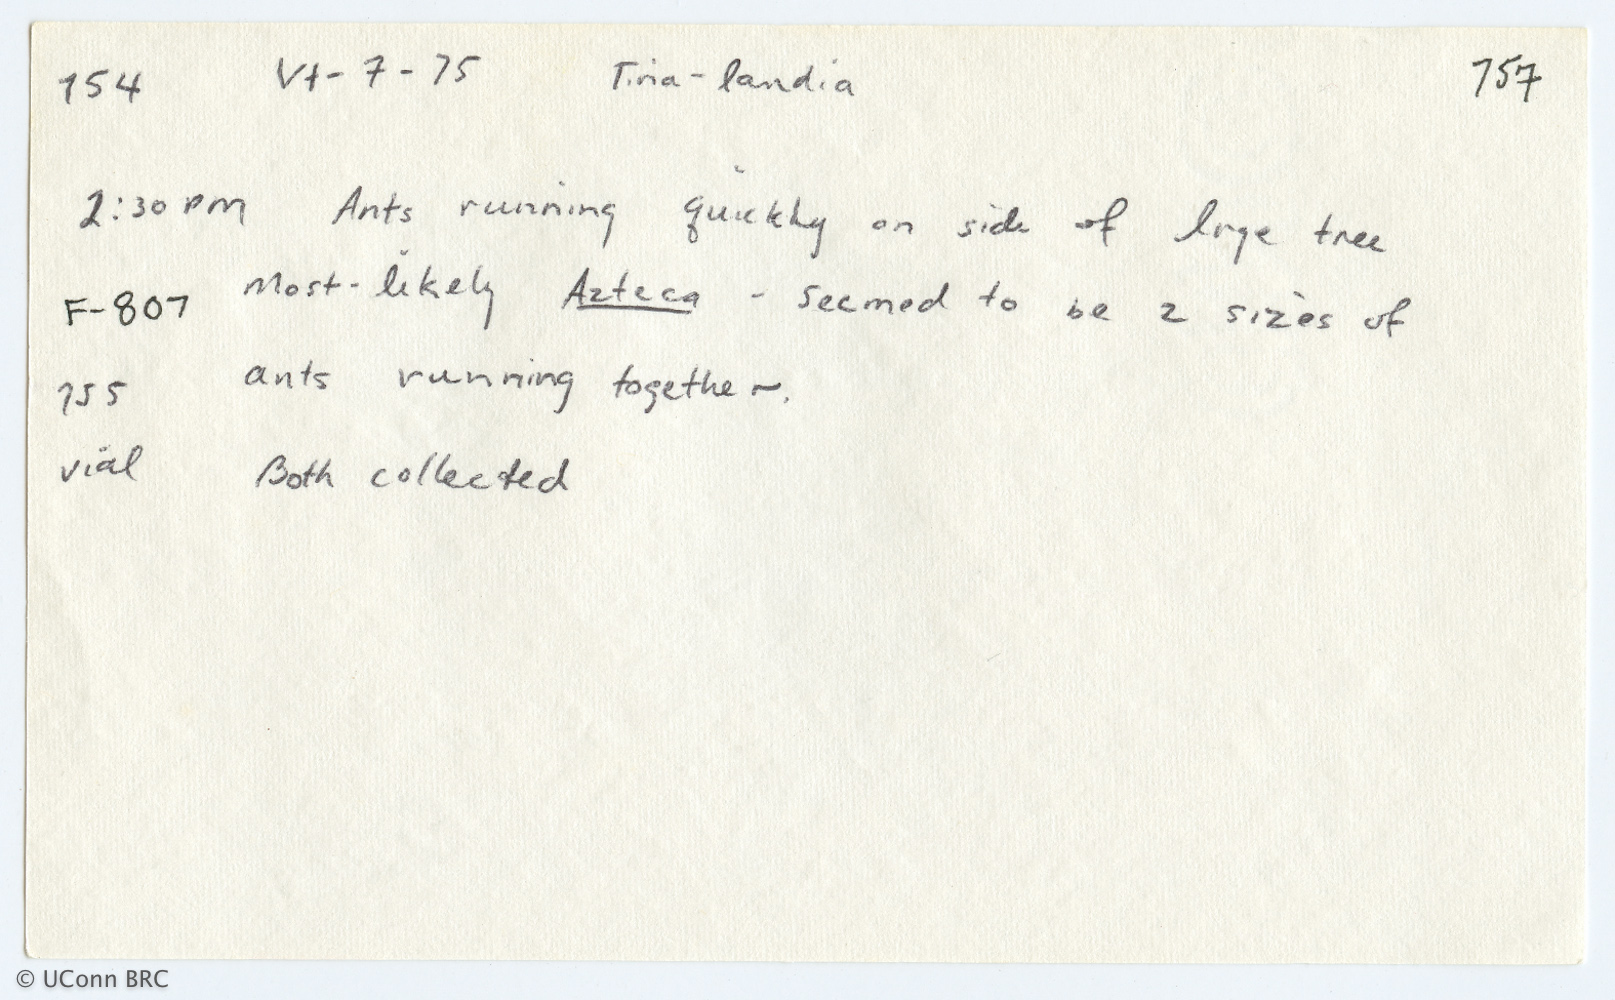 754 VI-7-75 Tina-landia 757
2:30 PM Ants running quickly on side of lrge tree
F-807 most-likely Azteca - seemed to be 2 sizes of
755 ants running together.
vial Both collected
© UConn BRC